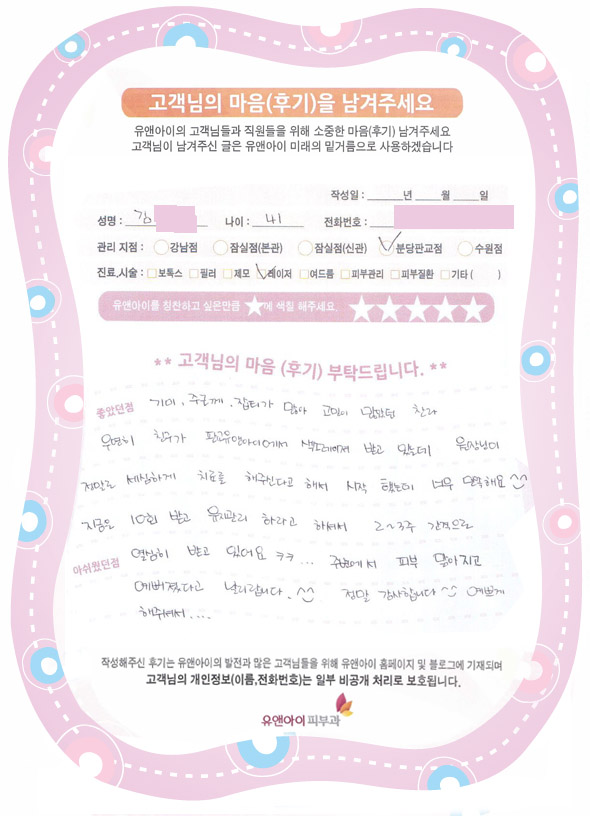 고객님의 마음(후기)을 남겨주세요
유앤아이의 고객님들과 직원들을 위해 소중한 마음(후기) 남겨주세요
고객님이 남겨주신 글은 유앤아이 미래의 밑거름으로 사용하겠습니다
작성일 : ______년 _____월 _____일
성명 : 김 나이 : 41 전화번호 :
관리 지점 : 강남점 잠실점(본관) 잠실점(신관) 분당판교점 수원점
진료,시술 : 보톡스 필러 제모 레이저 여드름 피부관리 피부질환 기타 ( )
유앤아이를 칭찬하고 싶은만큼 ★에 색칠 해주세요.
** 고객님의 마음 (후기) 부탁드립니다. **
좋았던점 기미, 주근깨, 잡티가 많아 고민이 많았던 찰나
우연히 친구가 판교유앤아이에서 색소레이저 받고 있는데 원장님이
정말로 세심하게 치료를 해주신다고 해서 시작 했는데 너무 만족해요 ^^
지금은 10회 받고 유지관리 하라고 하셔서 2~3주 간격으로
아쉬웠던점 열심히 받고 있어요 ㅋㅋ... 주변에서 피부 맑아지고
예뻐졌다고 난리랍니다. ^^ 정말 감사합니다 ^^ 예쁘게
해주셔서....
작성해주신 후기는 유앤아이의 발전과 많은 고객님들을 위해 유앤아이 홈페이지 및 블로그에 기재되며
고객님의 개인정보(이름,전화번호)는 일부 비공개 처리로 보호됩니다.
유앤아이피부과